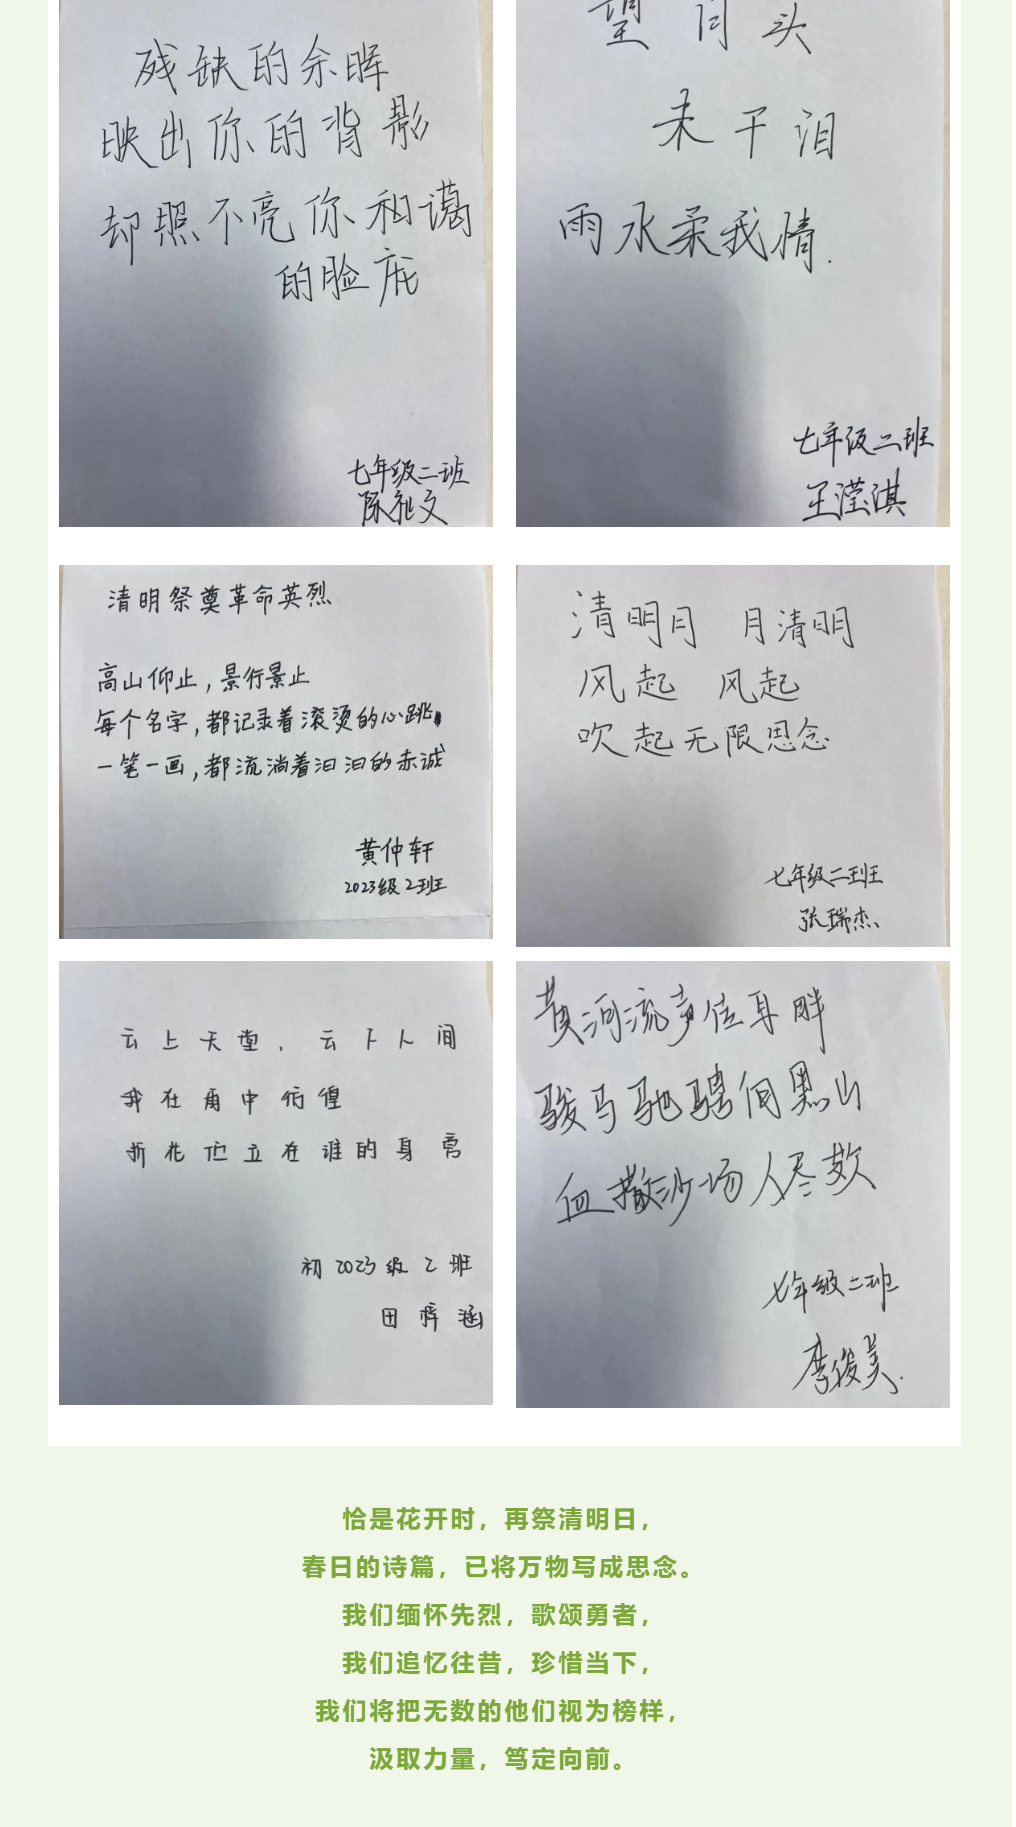 残缺的余晖
映出你的背影
却照不亮你和蔼
的脸庞
七年级二班
陈祉文
望月头
未干泪
雨水柔我情.
七年级二班
王滢淇
清明祭奠革命英烈
高山仰止，景行景止
每个名字，都记录着滚烫的心跳
一笔一画，都流淌着汩汩的赤诚
黄仲轩
2023级2班
清明月 月清明
风起 风起
吹起无限思念
七年级二班
张瑞杰
云上天堂，云下人间
我在雨中彷徨
折花伫立在谁的身旁
初2023级2班
田梓涵
黄河流声位耳畔
骏马驰骋间黑山
血撒沙场人尽欺
七年级二班
李俊美.
恰是花开时，再祭清明日，
春日的诗篇，已将万物写成思念。
我们缅怀先烈，歌颂勇者，
我们追忆往昔，珍惜当下，
我们将把无数的他们视为榜样，
汲取力量，笃定向前。